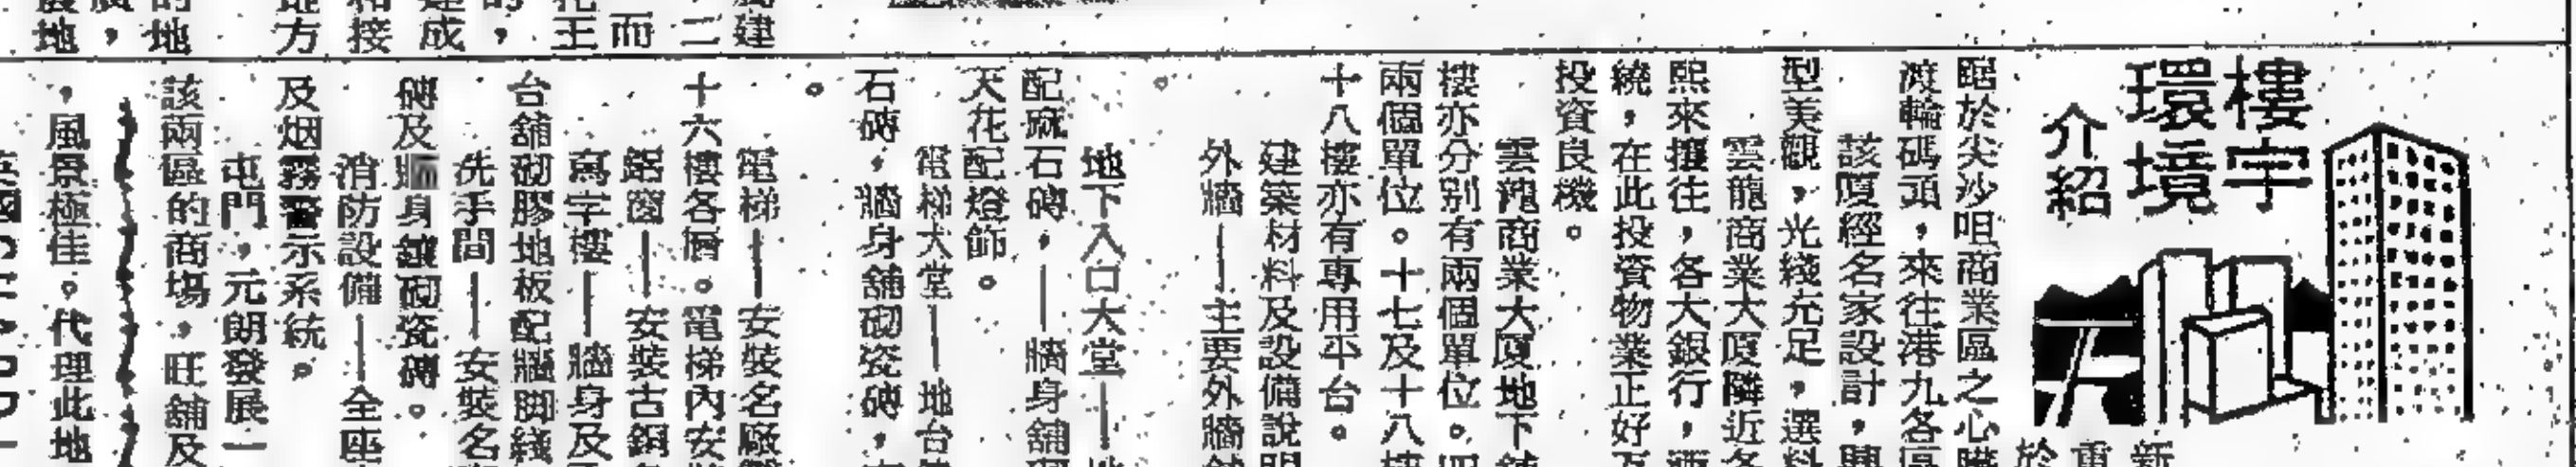 樓宇
環境
介紹
新
重
於
臨於尖沙咀商業區之心臟
渡輪碼頭，來往港九各區
該厦經名家設計，
型美觀，光綫充足，選料
雲龍商業大厦隣近各
熙來攘往，各大銀行，酒
繞，在此投資物業正好
投資良機。
雲龍商業大厦地下舖
樓亦分別有兩個單位。四
兩個單位。十七及十八樓
十八樓亦有專用平台。
建築材料及設備說明
外牆—主要外牆
。
地下入口大堂—地
配蔴石磚，—牆身舖砌
天花配燈飾。
電梯大堂—地台
石磚，牆身舖砌瓷磚，
。
電梯—安裝名廠
十六樓各層。電梯內安裝
鋁窗—安裝古銅色
寫字樓—牆身及
台舖砌膠地板配牆脚綫
洗手間—安裝名
磚及牆身鑲砌瓷磚。
消防設備—全座
及烟霧警示系統。
屯門，元朗發展一
該兩區的商場，旺舖及
，風景極佳。代理此地
建
二
而
花王
的，
建成
和接
地方
的地
廣，
展地